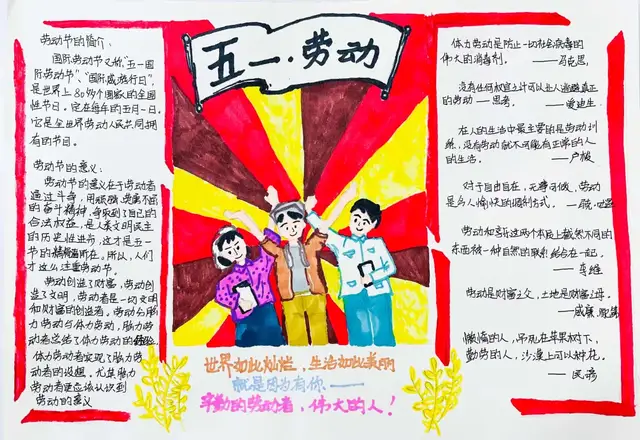 五一·劳动
劳动节的简介：
国际劳动节又称"五一国
际劳动节"、"国际
是世界上80多个国家的全国
性节日。定在每年的五月一日。
它是全世界劳动人民共同拥
有的节日。
劳动节的意义：
劳动节的意义在于劳动者
通过斗争，用顽强、英勇不屈
的奋斗精神，争取到了自己的
合法权益，是人类文明民主
的历史性进步，这才是五一
节的 所在。所以，人们
才这么注重劳动节。
劳动创造了财富，劳动创
造了文明，劳动者是一切文明
和财富的创造者，劳动分脑
力劳动与体力劳动，脑力劳
动者总结了体力劳动的经验，
体力劳动者实现了脑力劳
动者的设想。尤其脑力
劳动者更应该认识到
劳动的意义
世界如此灿烂，生活如此美丽
就是因为有你——
辛勤的劳动者，伟大的人！
体力劳动是防止一切社会病毒的
伟大的消毒剂。 ——马克思
没有任何权宜之计可以让人逃避真正
的劳动——思考。 ——爱迪生
在人的生活中最主要的是劳动训
练，没有劳动就不可能有正常的人
的生活。 ——卢梭
对于自由自在，无辱 ，劳动
是 人愉快的 方式。
劳动却 这两个本质上截然不同的
东西被一种自然的联系 在一起。
——李维
劳动是财富之父，土地是财富之母。
——威廉·配第
懒惰的人，吊死在苹果树下，
勤劳的人，沙漠上可以种花。
——民谚